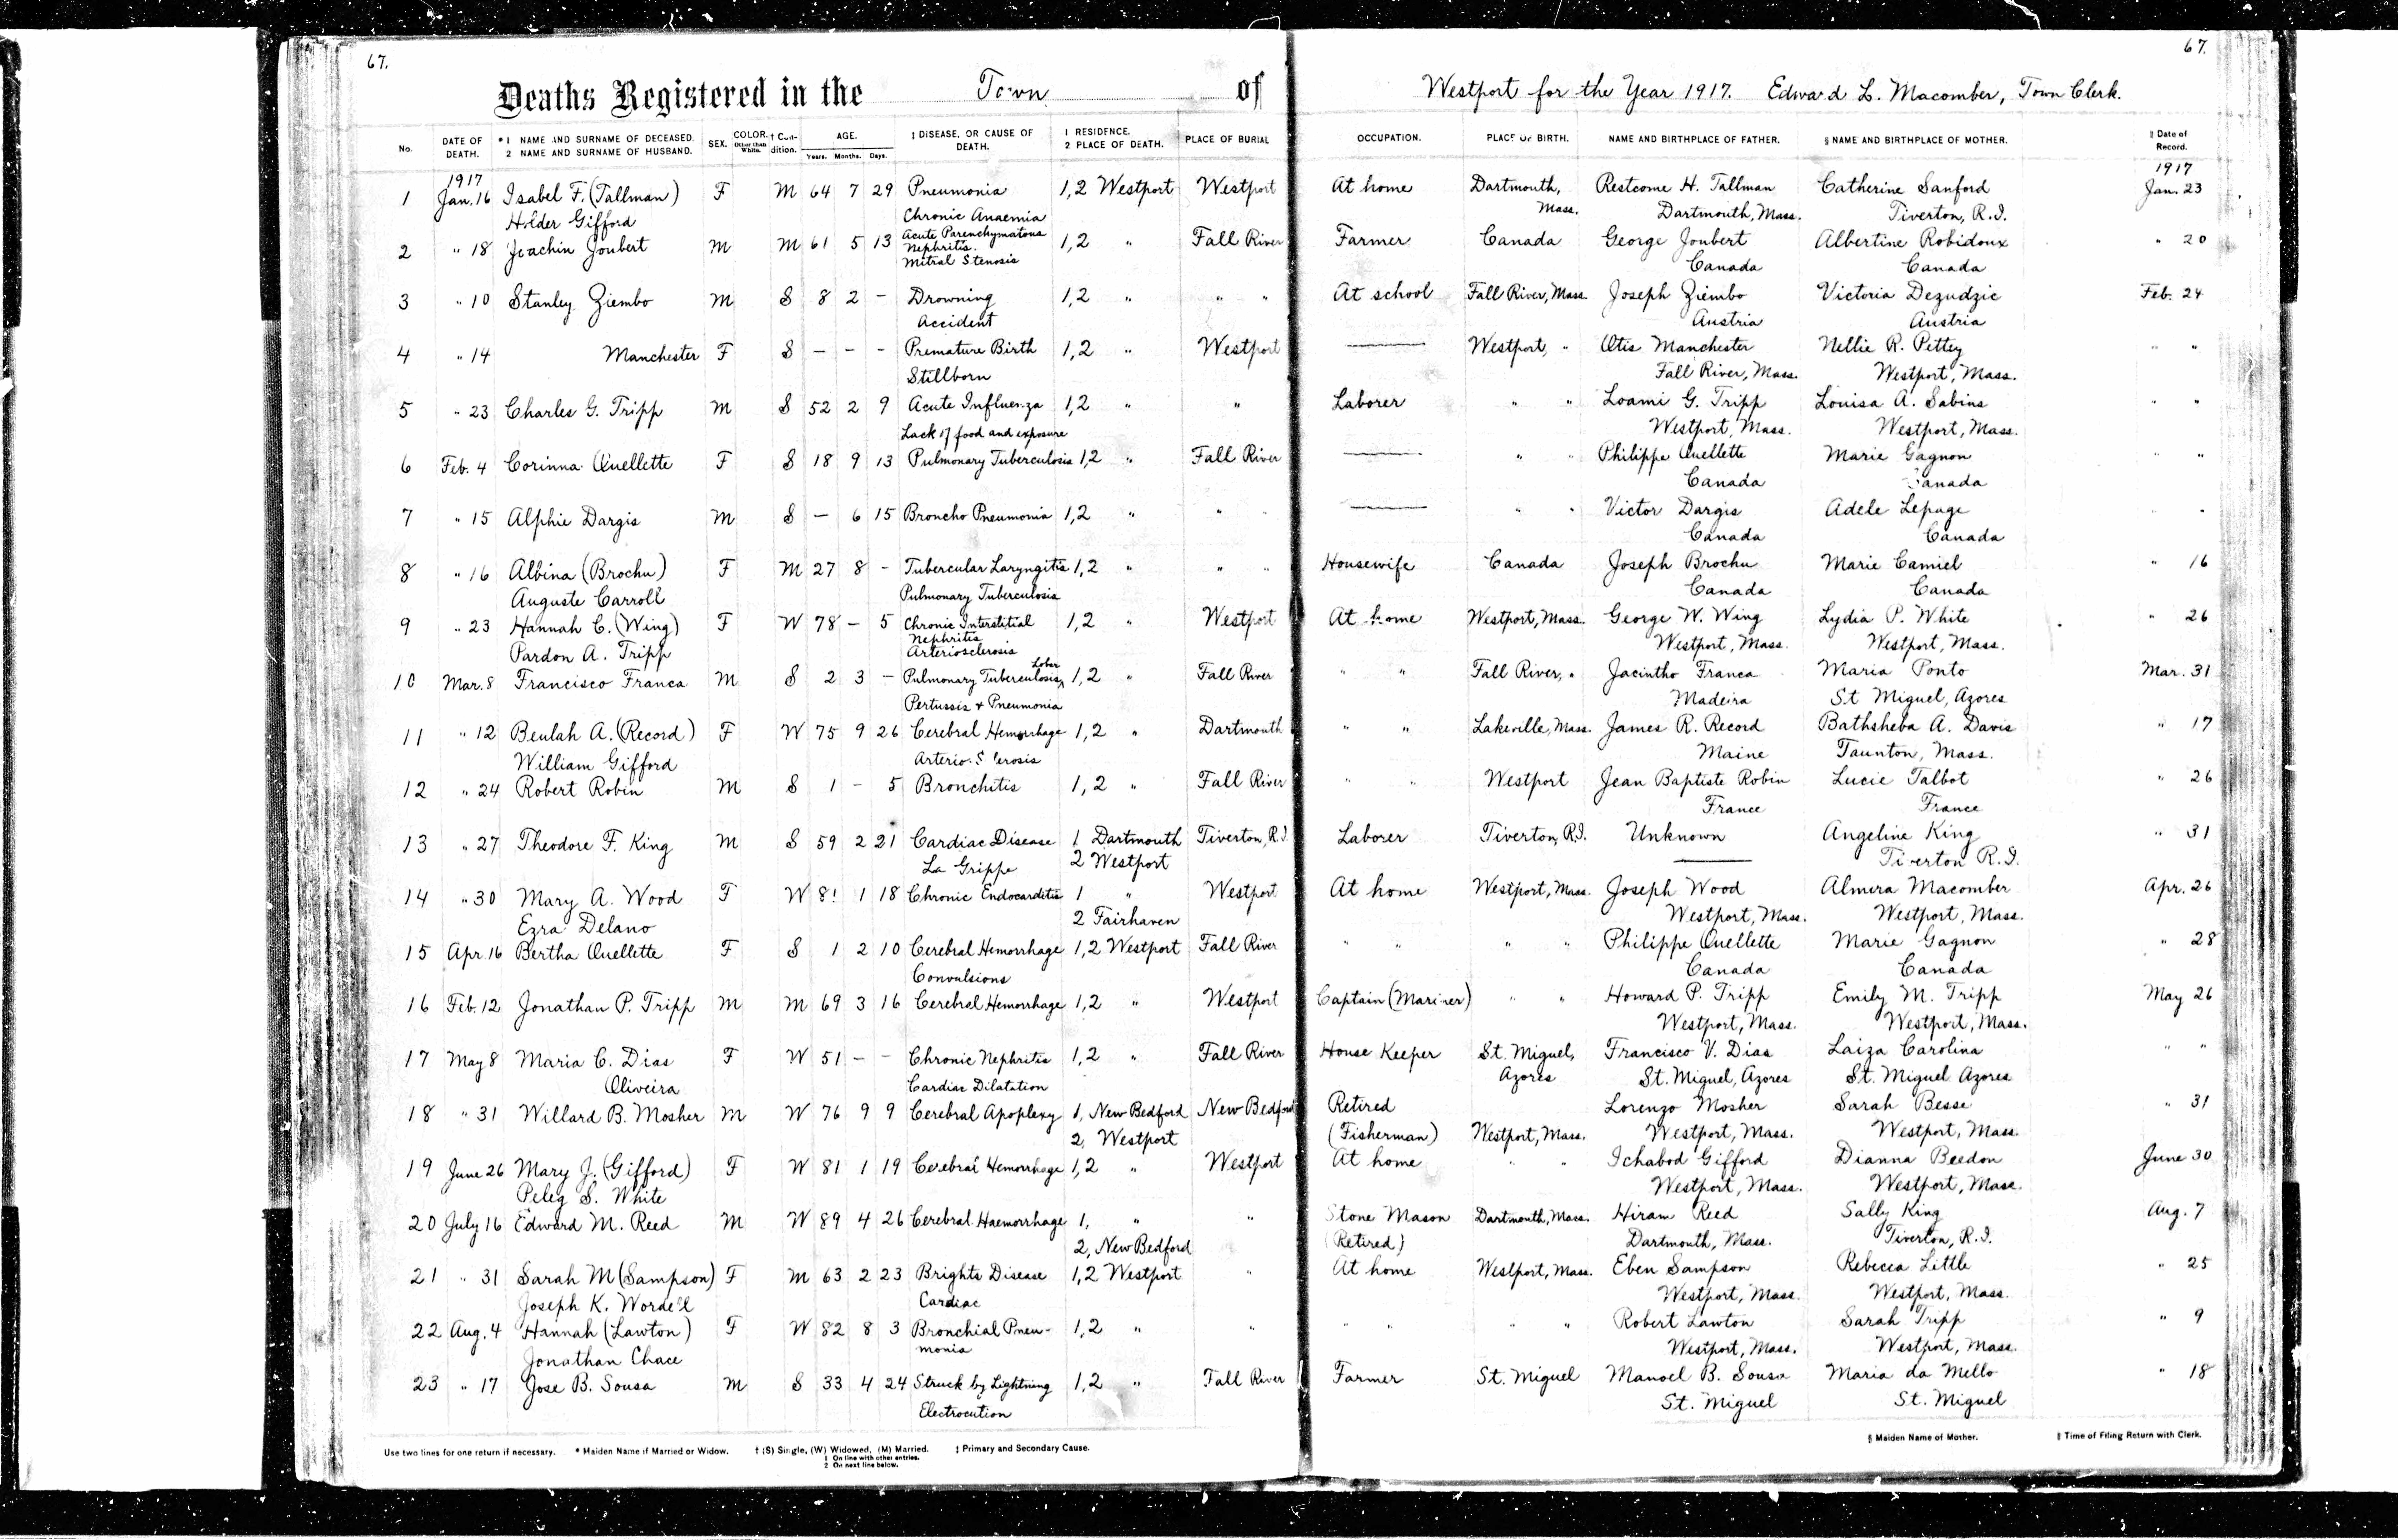 67. 67.
Deaths Registered in the Town of Westport for the Year 1917. Edward L. Macomber, Town Clerk.
No. DATE OF DEATH. *1 NAME AND SURNAME OF DECEASED. 2 NAME AND SURNAME OF HUSBAND. SEX. COLOR. Other than White. † Condition. AGE. Years. Months. Days. ‡ DISEASE, OR CAUSE OF DEATH. 1 RESIDENCE. 2 PLACE OF DEATH. PLACE OF BURIAL OCCUPATION. PLACE OF BIRTH. NAME AND BIRTHPLACE OF FATHER. § NAME AND BIRTHPLACE OF MOTHER. ‖ Date of Record.
1917 1917
1 Jan. 16 Isabel F. (Tallman) F M 64 7 29 Pneumonia 1,2 Westport Westport At home Dartmouth, Restcome H. Tallman Catherine Sanford Jan. 23
Holder Gifford Chronic Anaemia Mass. Dartmouth, Mass. Tiverton, R.I.
2 " 18 Joachin Joubert M M 61 5 13 Acute Parenchymatous 1,2 " Fall River Farmer Canada George Joubert Albertine Robidoux " 20
Nephritis. Mitral Stenosis Canada Canada
3 " 10 Stanley Ziembo M S 8 2 - Drowning 1,2 " " " At school Fall River, Mass. Joseph Ziembo Victoria Dezudzic Feb. 24
Accident Austria Austria
4 " 14 Manchester F S - - - Premature Birth 1,2 " Westport — Westport, " Otis Manchester Nellie R. Pettey " "
Stillborn Fall River, Mass. Westport, Mass.
5 " 23 Charles G. Tripp M S 52 2 9 Acute Influenza 1,2 " " Laborer " " Loami G. Tripp Louisa A. Sabins " "
Lack of food and exposure Westport, Mass. Westport, Mass.
6 Feb. 4 Corinna Ouellette F S 18 9 13 Pulmonary Tuberculosis 1,2 " Fall River — " " Philippe Ouellette Marie Gagnon " "
Canada Canada
7 " 15 Alphie Dargis M S - 6 15 Broncho Pneumonia 1,2 " " " — " " Victor Dargis Adele Lepage " "
Canada Canada
8 " 16 Albina (Brochu) F M 27 8 - Tubercular Laryngitis 1,2 " " " Housewife Canada Joseph Brochu Marie Camiel " 16
Auguste Carroll Pulmonary Tuberculosis Canada Canada
9 " 23 Hannah C. (Wing) F W 78 - 5 Chronic Interstitial 1,2 " Westport At home Westport, Mass. George W. Wing Lydia P. White " 26
Pardon A. Tripp Nephritis Arteriosclerosis Westport, Mass. Westport, Mass.
10 Mar. 8 Francisco Franca M S 2 3 - Pulmonary Tuberculosis, 1,2 " Fall River " " Fall River, " Jacintho Franca Maria Ponto Mar. 31
Pertussis + Lobar Pneumonia Madeira St Miguel, Azores
11 " 12 Beulah A. (Record) F W 75 9 26 Cerebral Hemorrhage 1,2 " Dartmouth " " Lakeville, Mass. James R. Record Bathsheba A. Davis " 17
William Gifford Arterio Sclerosis Maine Taunton, Mass.
12 " 24 Robert Robin M S 1 - 5 Bronchitis 1,2 " Fall River " " Westport Jean Baptiste Robin Lucie Talbot " 26
France France
13 " 27 Theodore F. King M S 59 2 21 Cardiac Disease 1 Dartmouth Tiverton, R.I. Laborer Tiverton, R.I. Unknown Angeline King " 31
La Grippe 2 Westport — Tiverton R.I.
14 " 30 Mary A. Wood F W 81 1 18 Chronic Endocarditis 1 " Westport At home Westport, Mass. Joseph Wood Almira Macomber Apr. 26
Ezra Delano 2 Fairhaven Westport, Mass. Westport, Mass.
15 Apr. 16 Bertha Ouellette F S 1 2 10 Cerebral Hemorrhage 1,2 Westport Fall River " " " " Philippe Ouellette Marie Gagnon " 28
Convulsions Canada Canada
16 Feb. 12 Jonathan P. Tripp M M 69 3 16 Cerebral Hemorrhage 1,2 " Westport Captain (Mariner) " " Howard P. Tripp Emily M. Tripp May 26
Westport, Mass. Westport, Mass.
17 May 8 Maria C. Dias F W 51 - - Chronic Nephritis 1,2 " Fall River House Keeper St. Miguel, Francisco V. Dias Laiza Carolina " "
Oliveira Cardiac Dilatation Azores St. Miguel, Azores St. Miguel Azores
18 " 31 Willard B. Mosher M W 76 9 9 Cerebral Apoplexy 1, New Bedford New Bedford Retired Lorenzo Mosher Sarah Besse " 31
2, Westport (Fisherman) Westport, Mass. Westport, Mass. Westport, Mass.
19 June 26 Mary J. (Gifford) F W 81 1 19 Cerebral Hemorrhage 1,2 " Westport At home " " Ichabod Gifford Dianna Beedon June 30
Peleg S. White Westport, Mass. Westport, Mass.
20 July 16 Edward M. Reed M W 89 4 26 Cerebral Haemorrhage 1, " " Stone Mason Dartmouth, Mass. Hiram Reed Sally King Aug. 7
2, New Bedford (Retired) Dartmouth, Mass. Tiverton, R.I.
21 " 31 Sarah M (Sampson) F M 63 2 23 Brights Disease 1,2 Westport " At home Westport, Mass. Eben Sampson Rebecca Little " 25
Joseph K. Wordell Cardiac Westport, Mass. Westport, Mass.
22 Aug. 4 Hannah (Lawton) F W 82 8 3 Bronchial Pneu- 1,2 " " " " " " Robert Lawton Sarah Tripp " 9
Jonathan Chace monia Westport, Mass. Westport, Mass.
23 " 17 Jose B. Sousa M S 33 4 24 Struck by Lightning 1,2 " Fall River Farmer St. Miguel Manoel B. Sousa Maria da Mello " 18
Electrocution St. Miguel St. Miguel
Use two lines for one return if necessary. * Maiden Name if Married or Widow. † (S) Single, (W) Widowed, (M) Married. ‡ Primary and Secondary Cause. § Maiden Name of Mother. ‖ Time of Filing Return with Clerk.
1 On line with other entries.
2 On next line below.